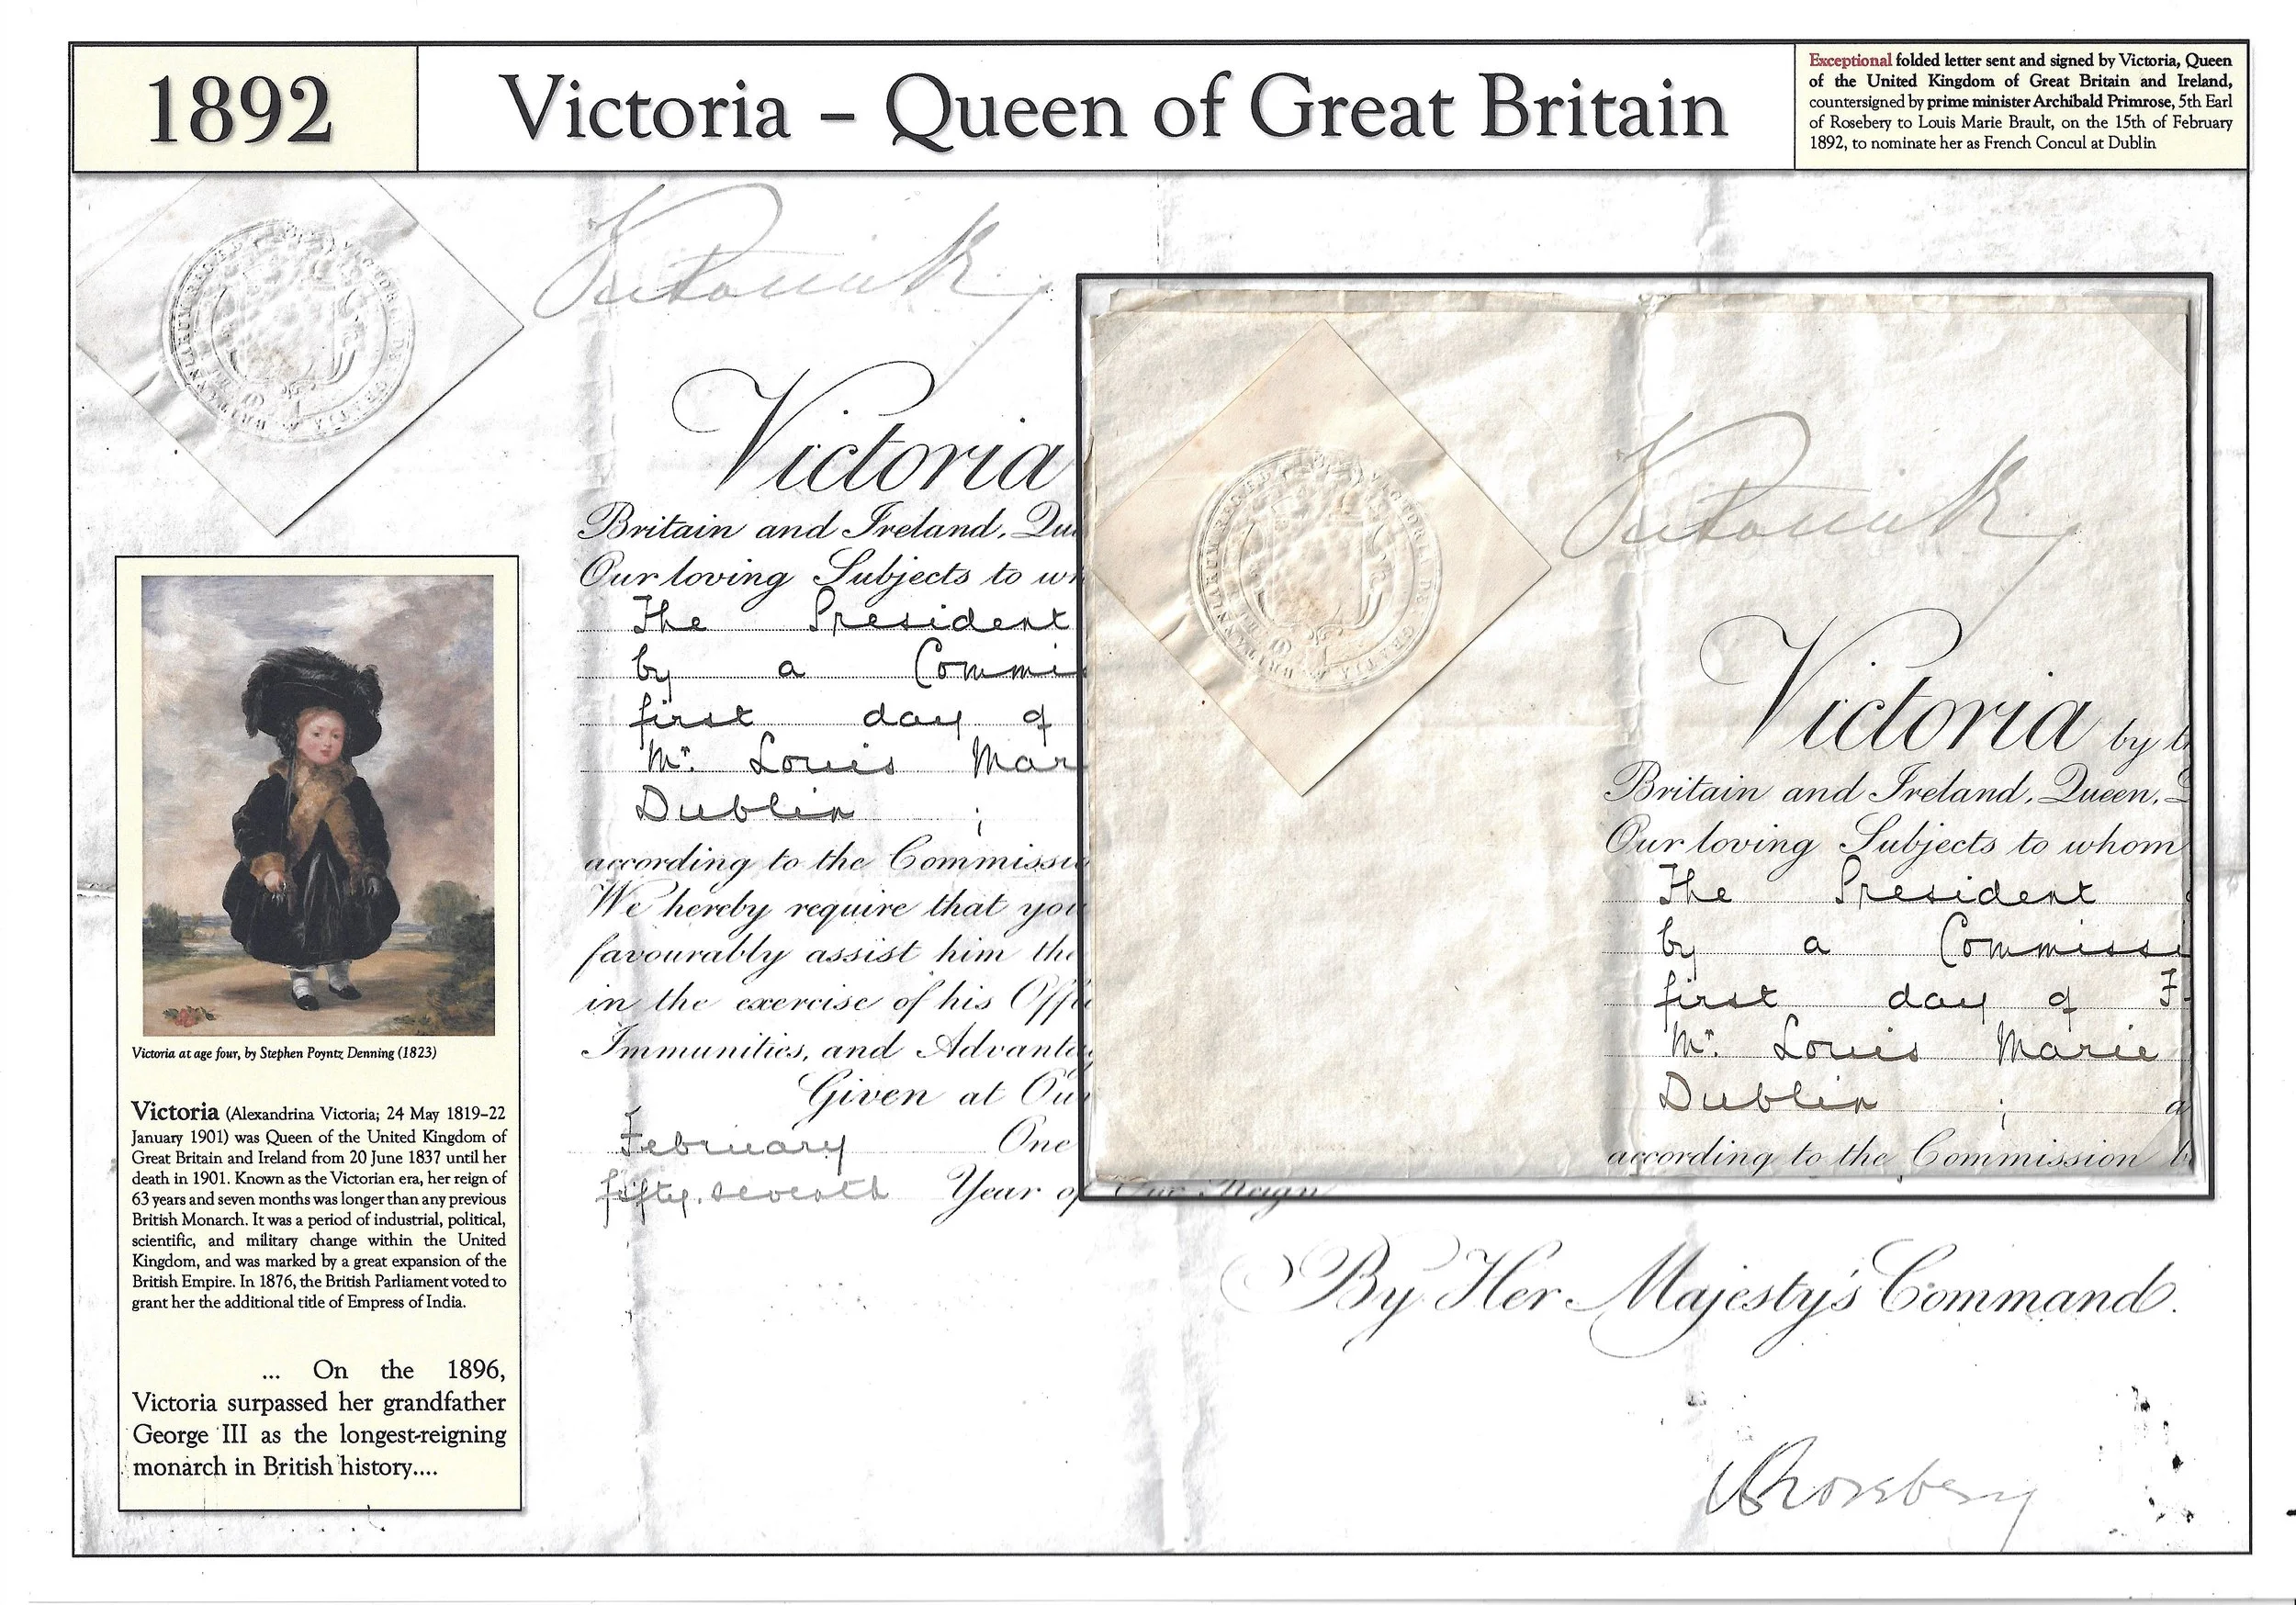 1892
Victoria – Queen of Great Britain
Exceptional folded letter sent and signed by Victoria, Queen
of the United Kingdom of Great Britain and Ireland,
countersigned by prime minister Archibald Primrose, 5th Earl
of Rosebery to Louis Marie Brault, on the 15th of February
1892, to nominate her as French Concul at Dublin
Victoria R
Victoria
Britain and Ireland, Qu
Our loving Subjects to wh
The President
by a Commi
first day of
Mr. Louis Mar
Dublin ;
according to the Commissi
We hereby require that you
favourably assist him the
in the exercise of his Offi
Immunities, and Advanta
Given at Our
February One
fifty-seventh Year of Our Reign
By Her Majesty's Command.
Rosebery
Victoria R
Victoria by t
Britain and Ireland, Queen,
Our loving Subjects to whom
The President
by a Commissi
first day of F
Mr. Louis Marie
Dublin ; a
according to the Commission b
Victoria at age four, by Stephen Poyntz Denning (1823)
Victoria (Alexandrina Victoria; 24 May 1819–22
January 1901) was Queen of the United Kingdom of
Great Britain and Ireland from 20 June 1837 until her
death in 1901. Known as the Victorian era, her reign of
63 years and seven months was longer than any previous
British Monarch. It was a period of industrial, political,
scientific, and military change within the United
Kingdom, and was marked by a great expansion of the
British Empire. In 1876, the British Parliament voted to
grant her the additional title of Empress of India.
... On the 1896,
Victoria surpassed her grandfather
George III as the longest-reigning
monarch in British history....